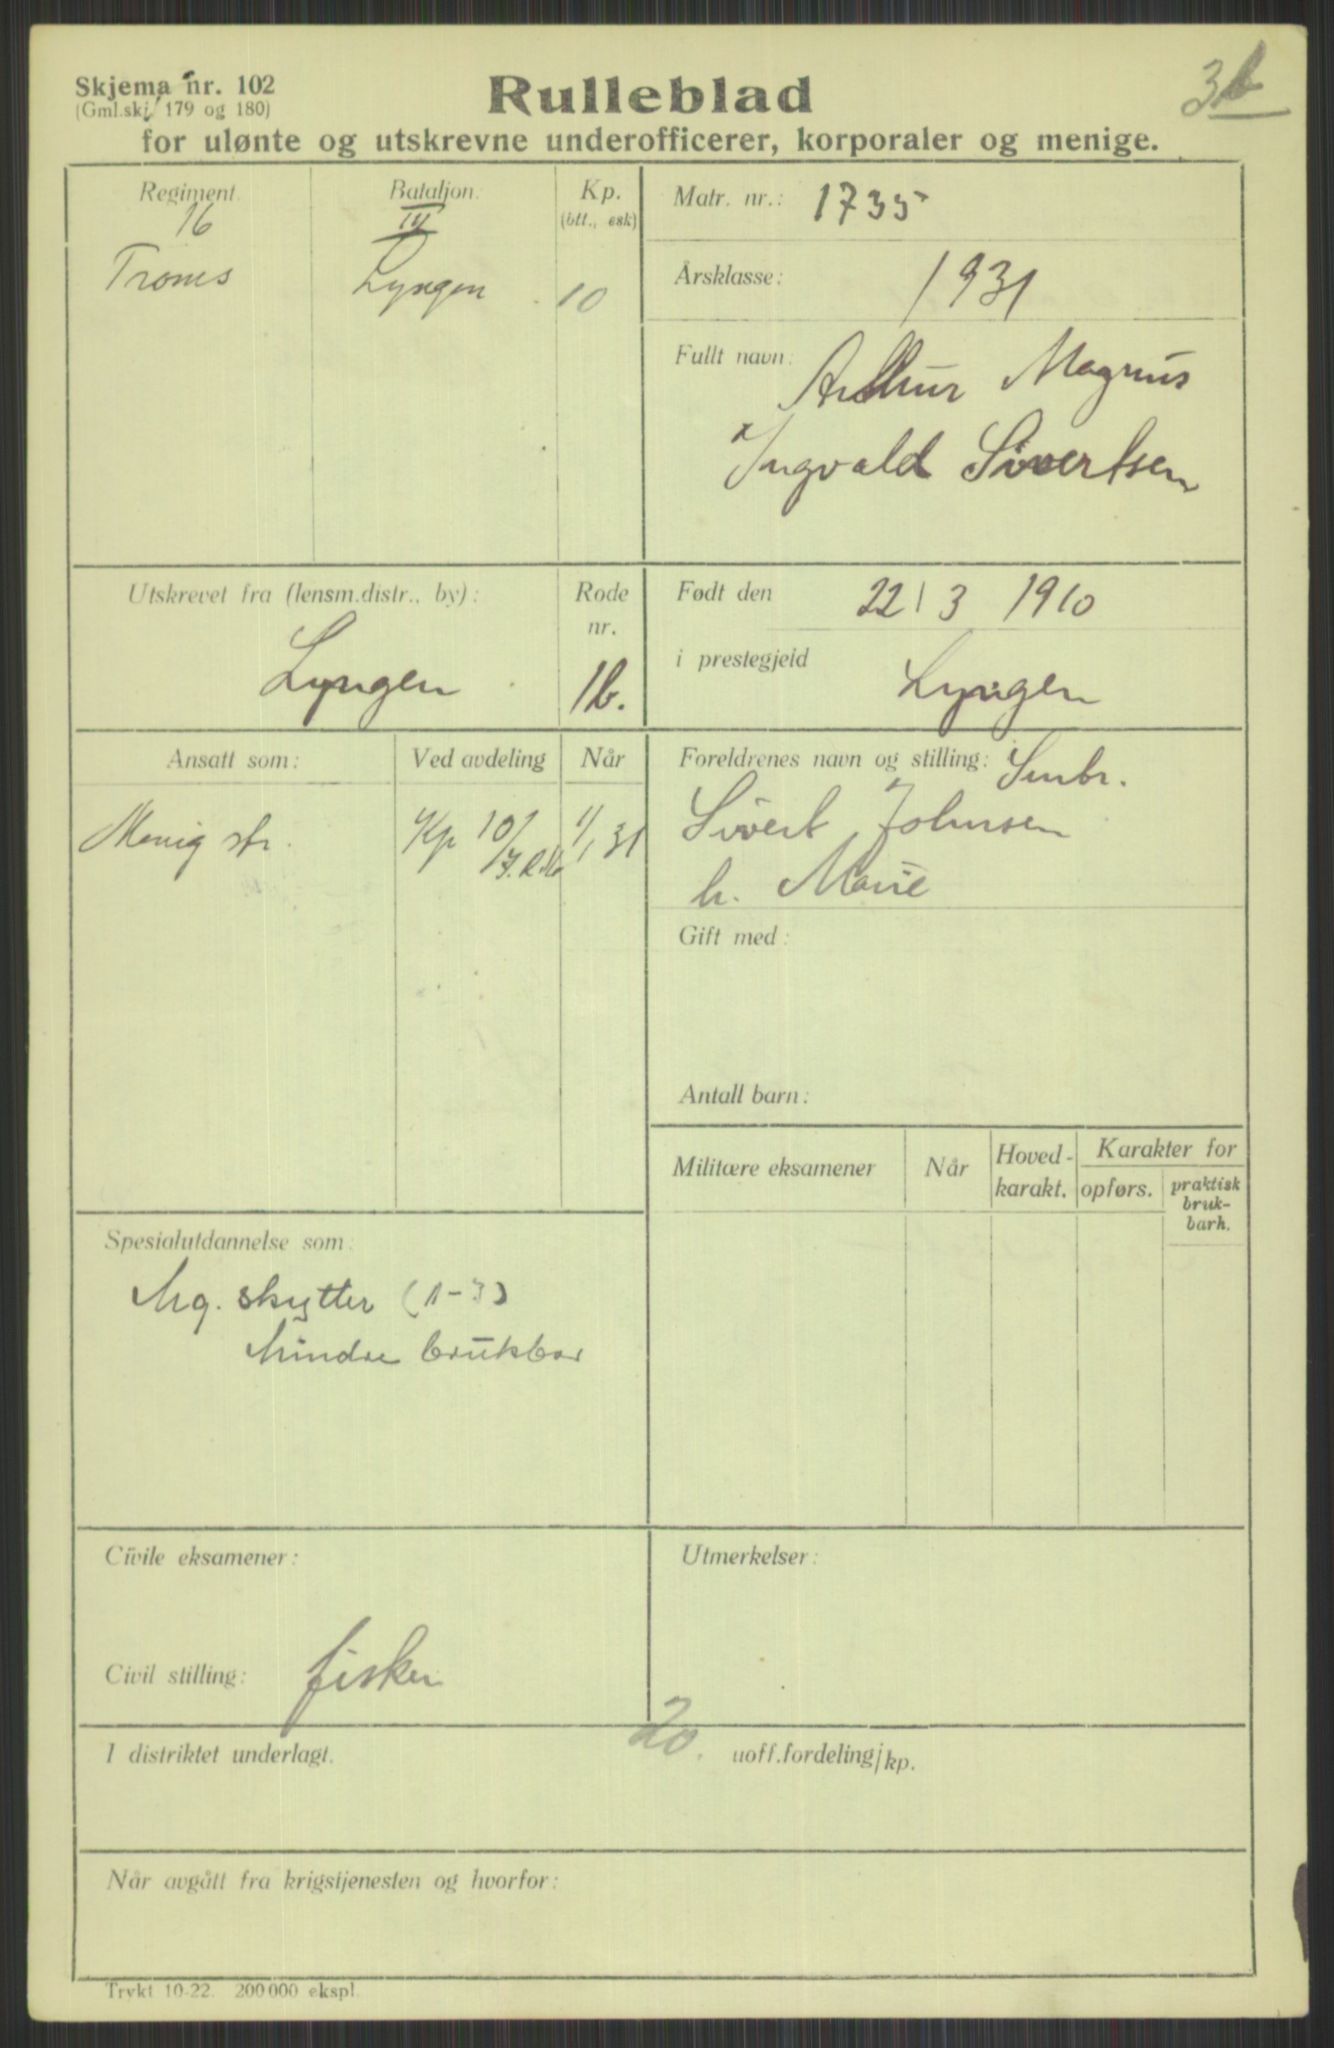 Skjema nr. 102
(Gml.skj. 179 og 180)
Rulleblad
for ulønte og utskrevne underofficerer, korporaler og menige.
Regiment.
16
Troms
Bataljon.
III
Lyngen
Kp.
(btt., esk)
10
Matr. nr.: 1735
Årsklasse: 1931
Fullt navn: Arthur Magnus
Ingvald Sivertsen
Utskrevet fra (lensm.distr., by):
Lyngen
Rode
nr.
1b.
Født den 22/3 1910
i prestegjeld Lyngen
Ansatt som: Ved avdeling Når
Menig str. Kp 10/ 1/1 31
Foreldrenes navn og stilling: Smbr.
Sivert Johnsen
h. Marie
Gift med:
Antall barn:
Militære eksamener Når Hoved-
karakt. Karakter for
opførs. praktisk
bruk-
barh.
Spesialutdannelse som:
Mg. skytter (1-3)
Mindre brukbar
Civile eksamener:
Civil stilling: fisker
Utmerkelser:
I distriktet underlagt. 20. uoff.fordeling/kp.
Når avgått fra krigstjenesten og hvorfor:
Trykt 10-22. 200 000 ekspl.